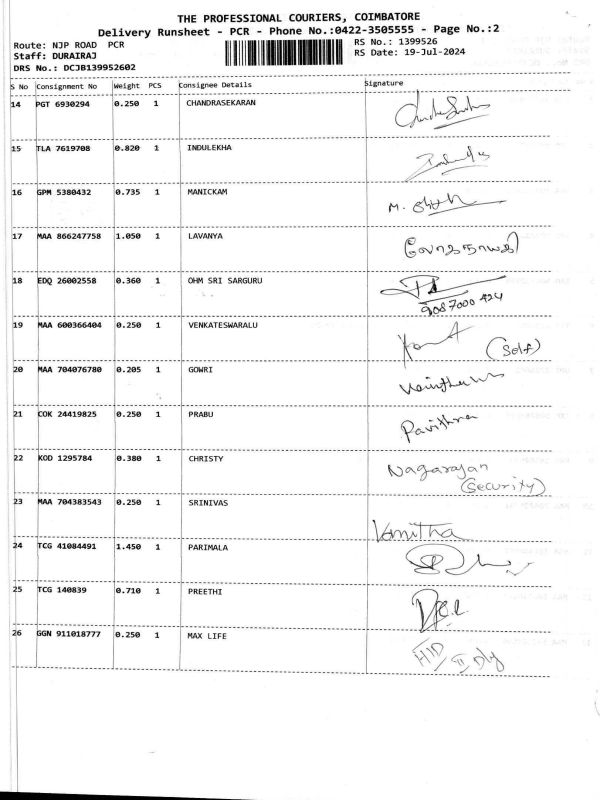 THE PROFESSIONAL COURIERS, COIMBATORE
Delivery Runsheet - PCR - Phone No.:0422-3505555 - Page No.:2
Route: NJP ROAD PCR
RS No.: 1399526
Staff: DURAIRAJ
RS Date: 19-Jul-2024
DRS No.: DCJB139952602
S No Consignment No Weight PCS Consignee Details Signature
14 PGT 6930294 0.250 1 CHANDRASEKARAN
15 TLA 7619708 0.820 1 INDULEKHA
16 GPM 5380432 0.735 1 MANICKAM M.
17 MAA 866247758 1.050 1 LAVANYA லோகநாயகி
18 EDQ 26002558 0.360 1 OHM SRI SARGURU
9087000424
19 MAA 600366404 0.250 1 VENKATESWARALU
(Self)
20 MAA 704076780 0.205 1 GOWRI
21 COK 24419825 0.250 1 PRABU Pavithra
22 KOD 1295784 0.380 1 CHRISTY Nagarajan
(Security)
23 MAA 704383543 0.250 1 SRINIVAS
Vanitha
24 TCG 41084491 1.450 1 PARIMALA
25 TCG 140839 0.710 1 PREETHI
26 GGN 911018777 0.250 1 MAX LIFE
H/D
II Dly